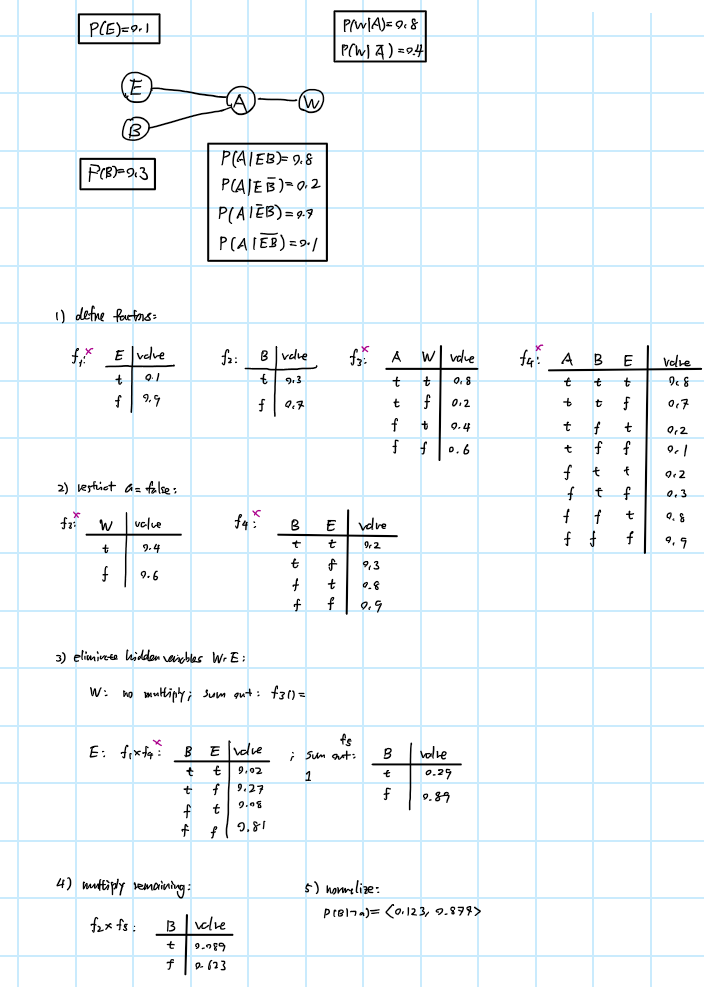 P(E)=0.1
P(W|A)=0.8
P(W|A̅)=0.4
E
A
W
B
P(B)=0.3
P(A|EB)=0.8
P(A|EB̅)=0.2
P(A|E̅B)=0.7
P(A|E̅B̅)=0.1
1) define factors:
f₁: x
E value
t 0.1
f 0.9
f₂:
B value
t 0.3
f 0.7
f₃: x
A W value
t t 0.8
t f 0.2
f t 0.4
f f 0.6
f₄: x
A B E value
t t t 0.8
t t f 0.7
t f t 0.2
t f f 0.1
f t t 0.2
f t f 0.3
f f t 0.8
f f f 0.9
2) restrict a = false:
f₃: x
W value
t 0.4
f 0.6
f₄: x
B E value
t t 0.2
t f 0.3
f t 0.8
f f 0.9
3) eliminate hidden variables W, E:
W: no multiply; sum out: f₃() =
E: f₁×f₄: x
B E value
t t 0.02
t f 0.27
f t 0.08
f f 0.81
; sum out:
1
f₅
B value
t 0.29
f 0.89
4) multiply remaining:
f₂×f₅:
B value
t 0.089
f 0.623
5) normalize:
P(B|¬a)= <0.123, 0.878>